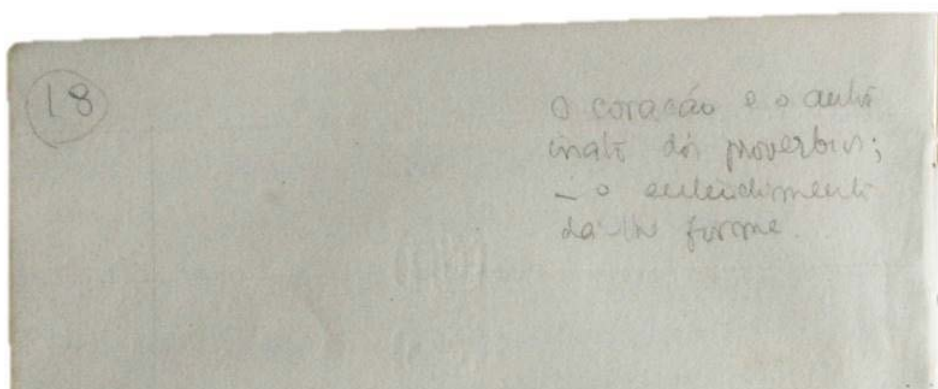 18
O coração e o
inato dos proverbios;
— o entendimento
da-lhe forma.